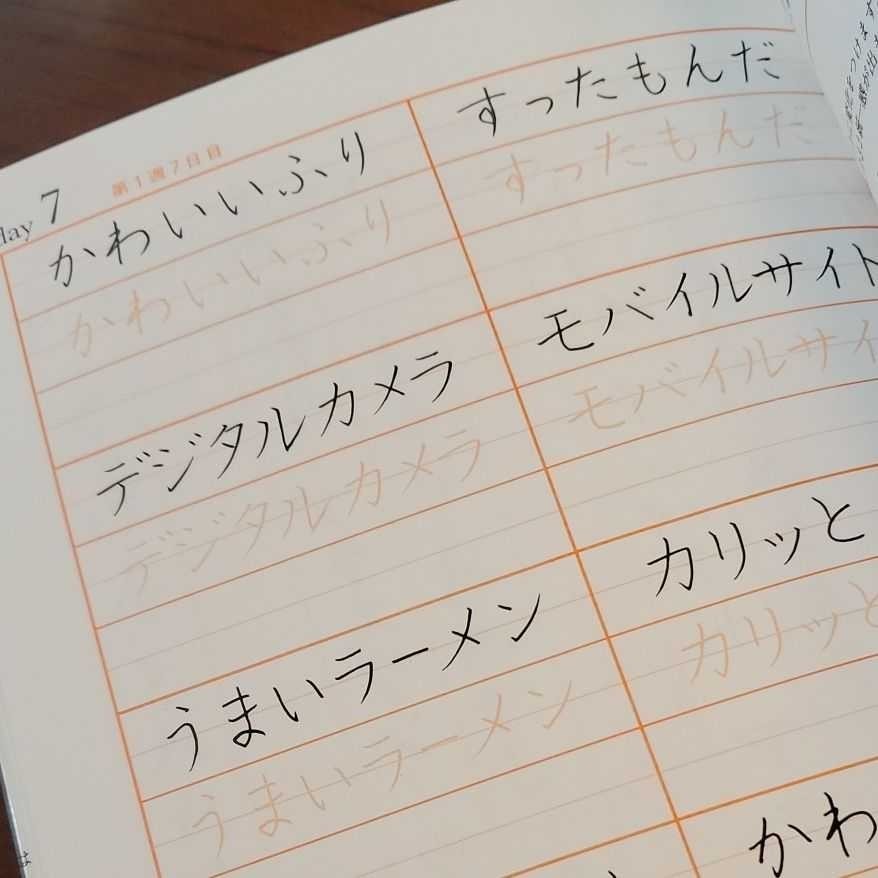 day 7 第1週7日目
かわいいふり
かわいいふり
すったもんだ
すったもんだ
デジタルカメラ
デジタルカメラ
モバイルサイト
モバイルサイ
うまいラーメン
うまいラーメン
カリッと
カリッと
かわ
は